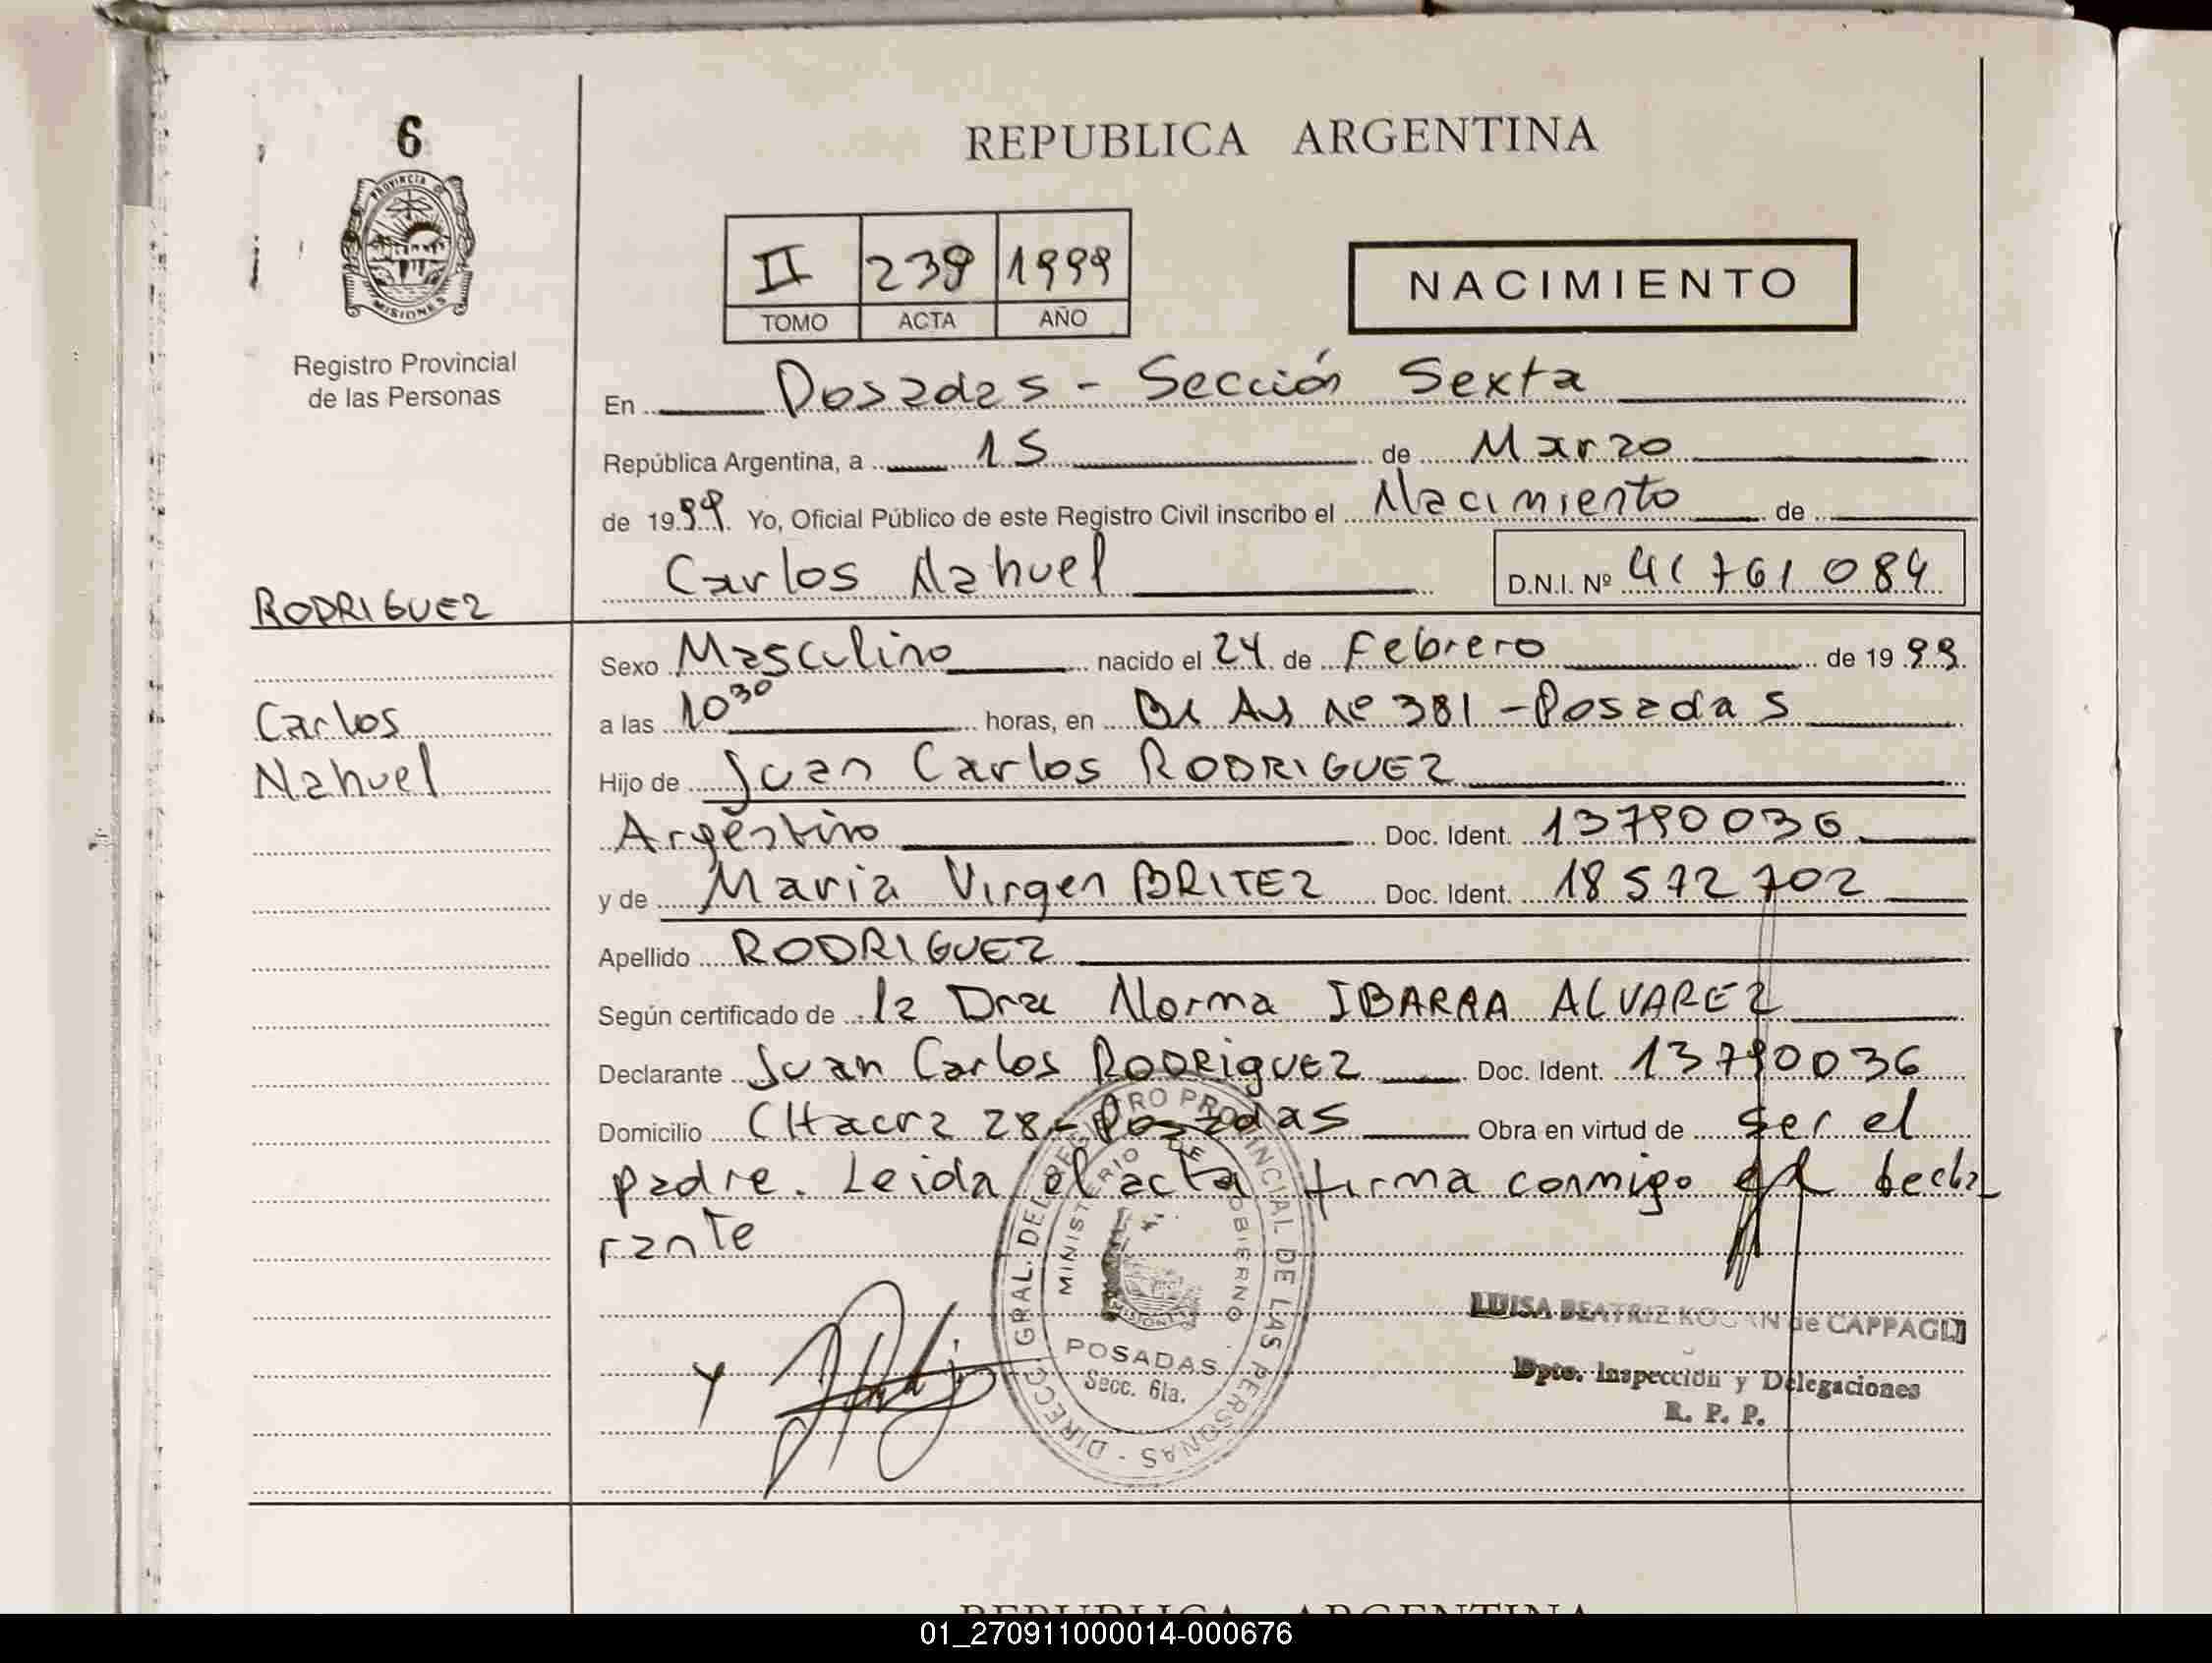 6
PROVINCIA D
MISIONES
Registro Provincial
de las Personas
REPUBLICA ARGENTINA
II 239 1999
TOMO ACTA AÑO
NACIMIENTO
En Posadas - Sección Sexta
República Argentina, a 15 de Marzo
de 1999. Yo, Oficial Público de este Registro Civil inscribo el Nacimiento de
Carlos Nahuel D.N.I. Nº 41 761 084
RODRIGUEZ
Carlos
Nahuel
Sexo Masculino nacido el 24 de Febrero de 1999.
a las 10 30 horas, en Bs As Nº 381 - Posadas
Hijo de Juan Carlos RODRIGUEZ
Argentino Doc. Ident. 13790036
y de Maria Virgen BRITEZ Doc. Ident. 18 572 702
Apellido RODRIGUEZ
Según certificado de la Dra Norma IBARRA ALVAREZ
Declarante Juan Carlos RODRIGUEZ Doc. Ident. 13790036
Domicilio CHacra 28 - Posadas Obra en virtud de ser el
padre. Leida el acta firma conmigo el decla_
rante
DIRECC. GRAL. DEL REGISTRO PROVINCIAL DE LAS PERSONAS -
MINISTERIO DE GOBIERNO
MISIONES
POSADAS
Secc. 6ta.
LUISA BEATRIZ de CAPPAGLI
Dpto. Inspección y Delegaciones
R. P. P.
REPUBLICA ARGENTINA
01_270911000014-000676